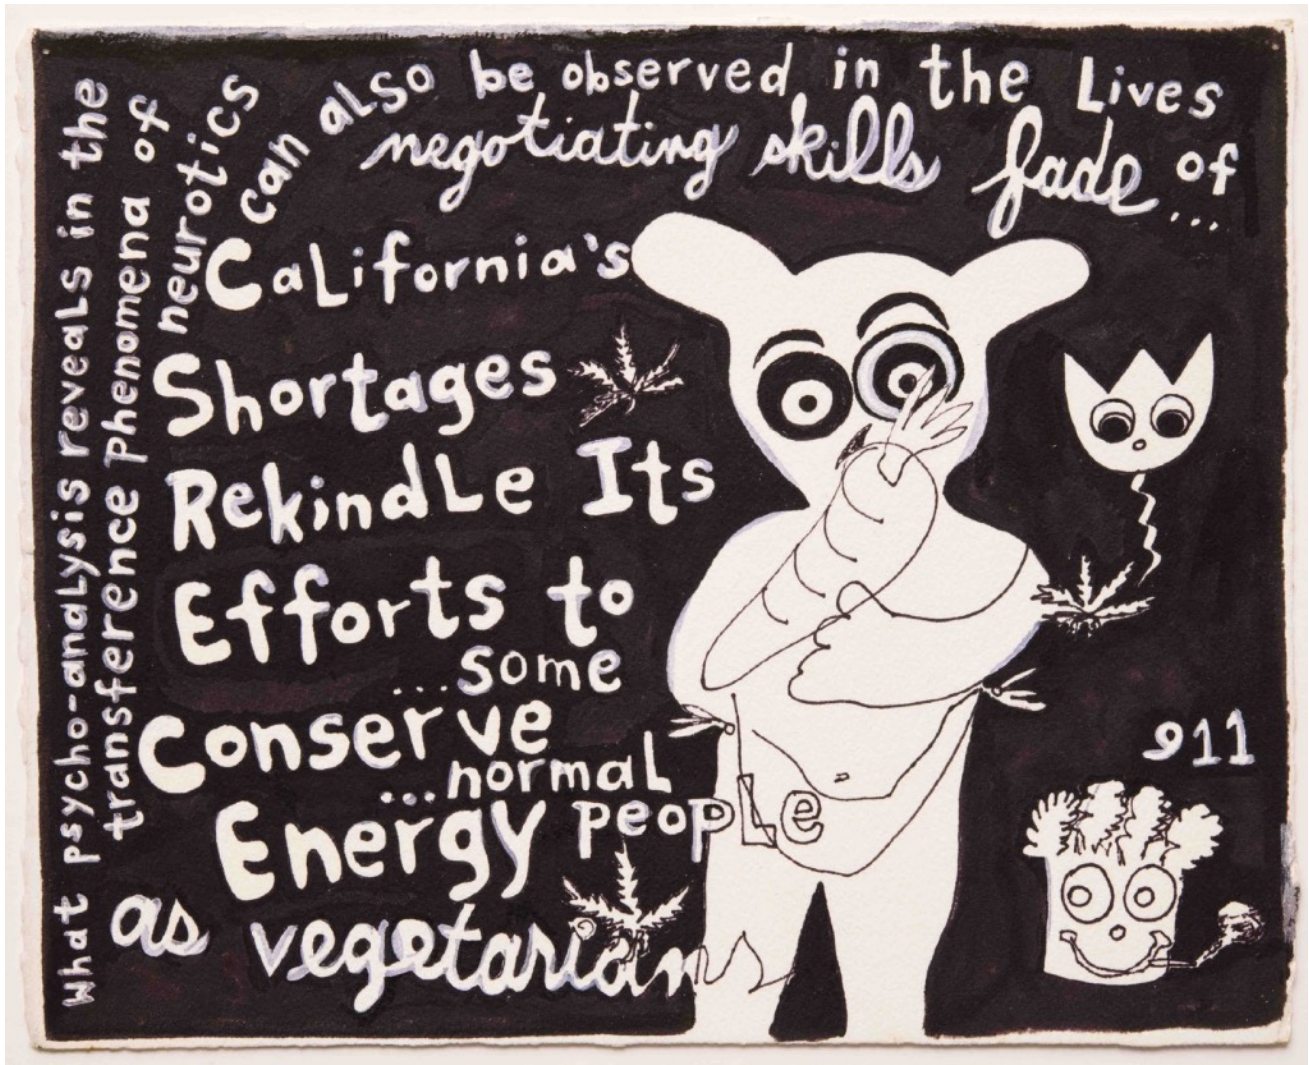 What psycho-analysis reveals in the
transference Phenomena of
neurotics
can also be observed in the Lives
of
negotiating skills fade...
California's
Shortages
Rekindle Its
Efforts to
...some
Conserve
...normal
Energy people
as vegetarians
911